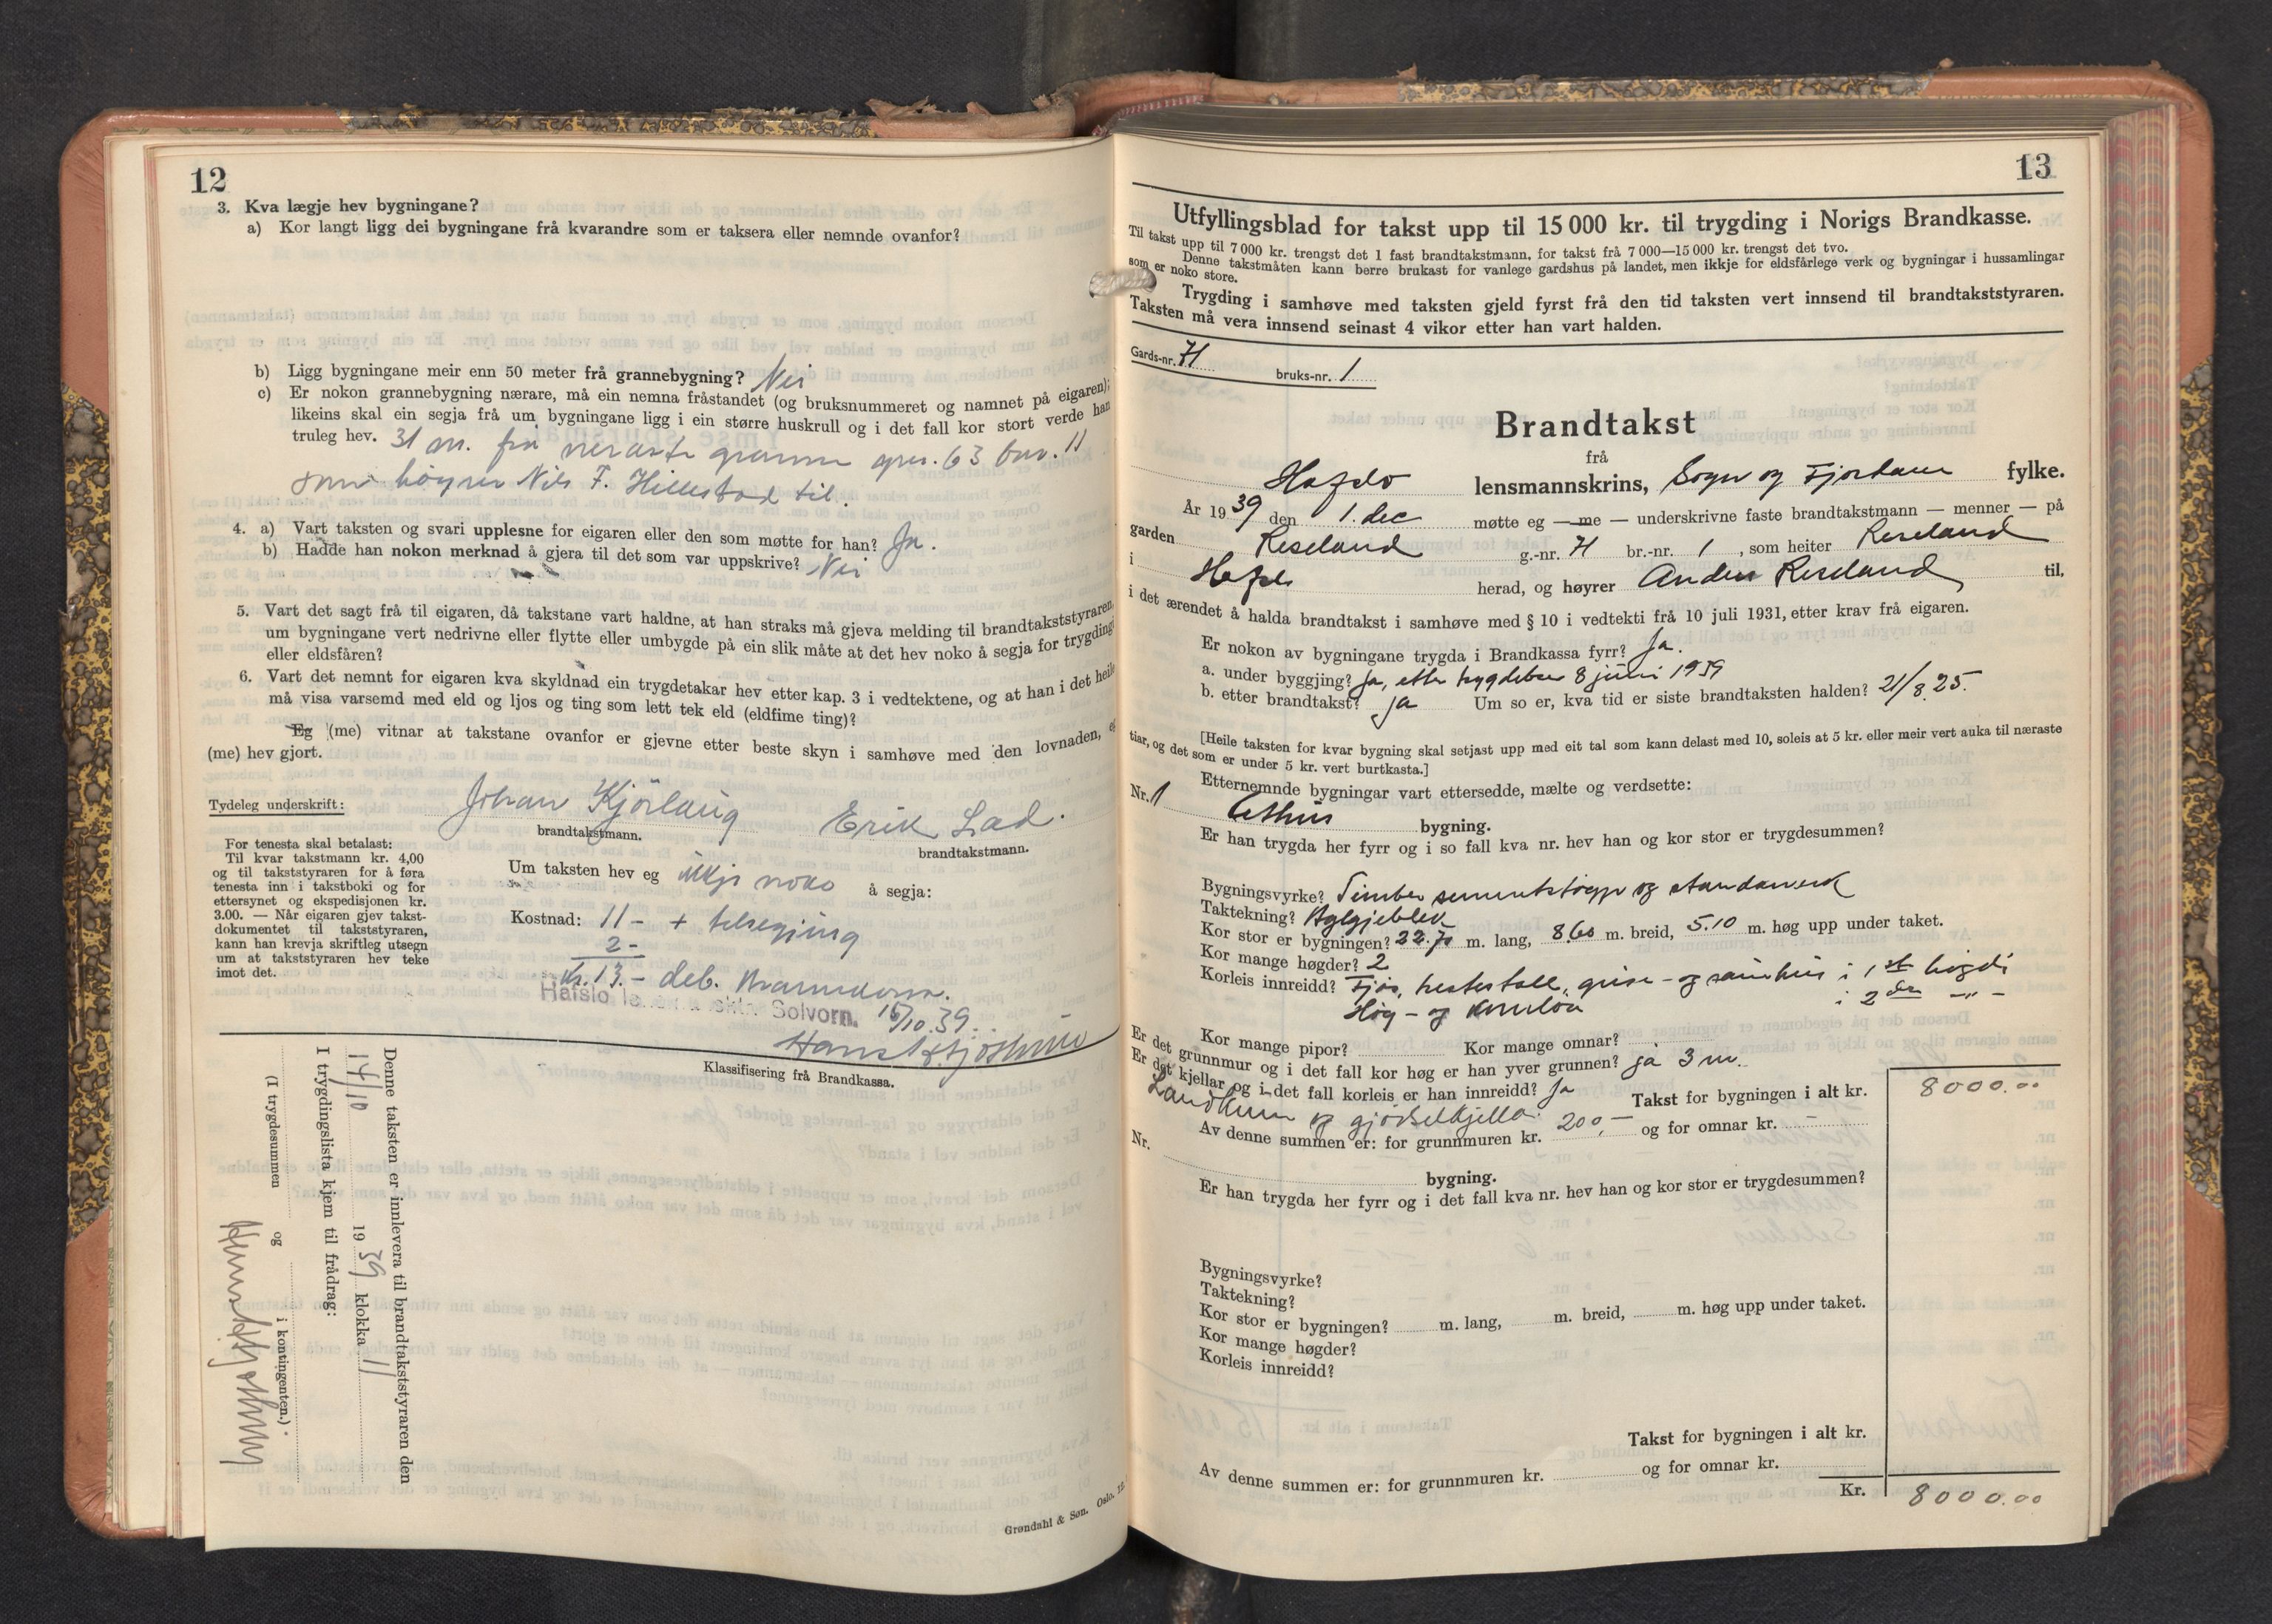 12
3. Kva lægje hev bygningane?
a) Kor langt ligg dei bygningane frå kvarandre som er taksera eller nemnde ovanfor?
b) Ligg bygningane meir enn 50 meter frå grannebygning? Nei
c) Er nokon grannebygning nærare, må ein nemna fråstandet (og bruksnummeret og namnet på eigaren);
likeins skal ein segja frå um bygningane ligg i ein større huskrull og i det fall kor stort verde han
truleg hev. 31 m. frå næraste granne gnr. 63 bnr. 11
som höyrer Nils F. Hillestad til.
4. a) Vart taksten og svari upplesne for eigaren eller den som møtte for han? Ja.
b) Hadde han nokon merknad å gjera til det som var uppskrive? Nei
5. Vart det sagt frå til eigaren, då takstane vart haldne, at han straks må gjeva melding til brandtakststyraren,
um bygningane vert nedrivne eller flytte eller umbygde på ein slik måte at det hev noko å segja for trygdingi
eller eldsfåren?
6. Vart det nemnt for eigaren kva skyldnad ein trygdetakar hev etter kap. 3 i vedtektene, og at han i det heile
må visa varsemd med eld og ljos og ting som lett tek eld (eldfime ting)?
Eg (me) vitnar at takstane ovanfor er gjevne etter beste skyn i samhøve med den lovnaden, eg
(me) hev gjort.
Tydeleg underskrift: Johan Kjörlaug Erik Lad.
brandtakstmann. brandtakstmann.
For tenesta skal betalast:
Til kvar takstmann kr. 4,00
og til takststyraren for å føra
tenesta inn i takstboki og for
ettersynet og ekspedisjonen kr.
3.00. — Når eigaren gjev takst-
dokumentet til takststyraren,
kann han krevja skriftleg utsegn
um at takststyraren hev teke
imot det.
Um taksten hev eg ikkje noko å segja:
Kostnad: 11 - +
2 -
Kr. 13.- deb.
Hafslo Solvorn. 15/10.39.
Klassifisering frå Brandkassa.
Denne taksten er innlevera til brandtakststyraren den
14/10 1939 klokka 11
I trygdingslista kjem til frådrag:
(I trygdesummen og i kontingenten.)
Grøndahl & Søn. Oslo.
13
Utfyllingsblad for takst upp til 15 000 kr. til trygding i Norigs Brandkasse.
Til takst upp til 7 000 kr. trengst det 1 fast brandtakstmann, for takst frå 7 000—15 000 kr. trengst det tvo.
Denne takstmåten kann berre brukast for vanlege gardshus på landet, men ikkje for eldsfårlege verk og bygningar i hussamlingar
som er noko store.
Trygding i samhøve med taksten gjeld fyrst frå den tid taksten vert innsend til brandtakststyraren.
Taksten må vera innsend seinast 4 vikor etter han vart halden.
Gards-nr. 71 bruks-nr. 1
Brandtakst
frå
Hafslo lensmannskrins, Sogn og Fjordane fylke.
År 1939 den 1. dec møtte eg — me — underskrivne faste brandtakstmann — menner — på
garden Reseland g.-nr. 71 br.-nr. 1, som heiter Reseland
i Hafslo herad, og høyrer Anders Reseland til,
i det ærendet å halda brandtakst i samhøve med § 10 i vedtekti frå 10 juli 1931, etter krav frå eigaren.
Er nokon av bygningane trygda i Brandkassa fyrr? Ja.
a. under byggjing? Ja, etter trygdebrev 8 juni 1939
b. etter brandtakst? Ja Um so er, kva tid er siste brandtaksten halden? 21/8.25.
[Heile taksten for kvar bygning skal setjast upp med eit tal som kann delast med 10, soleis at 5 kr. eller meir vert auka til næraste
tiar, og det som er under 5 kr. vert burtkasta.]
Etternemnde bygningar vart ettersedde, mælte og verdsette:
Nr. 1 Uthus bygning.
Er han trygda her fyrr og i so fall kva nr. hev han og kor stor er trygdesummen?
Bygningsvyrke? Timber sementstöypt og standarverk
Taktekning? Bylgjeblekk
Kor stor er bygningen? 22.70 m. lang, 8.60 m. breid, 5.10 m. høg upp under taket.
Kor mange høgder? 2
Korleis innreidd? Fjös, hestestall, grise - og sauehus i 1ste högdi
Höy - og kornlöa i 2dre -"-
Kor mange pipor? Kor mange omnar?
Er det grunnmur og i det fall kor høg er han yver grunnen? ja 3 m.
Er det kjellar og i det fall korleis er han innreidd? Ja
Landkum og gjödselkjellar. Takst for bygningen i alt kr. 8000.00
Av denne summen er: for grunnmuren kr. 200,- og for omnar kr. -
Nr. bygning.
Er han trygda her fyrr og i det fall kva nr. hev han og kor stor er trygdesummen?
Bygningsvyrke?
Taktekning?
Kor stor er bygningen? m. lang, m. breid, m. høg upp under taket.
Kor mange høgder?
Korleis innreidd?
Takst for bygningen i alt kr.
Av denne summen er: for grunnmuren kr. og for omnar kr.
Kr. 8000.00